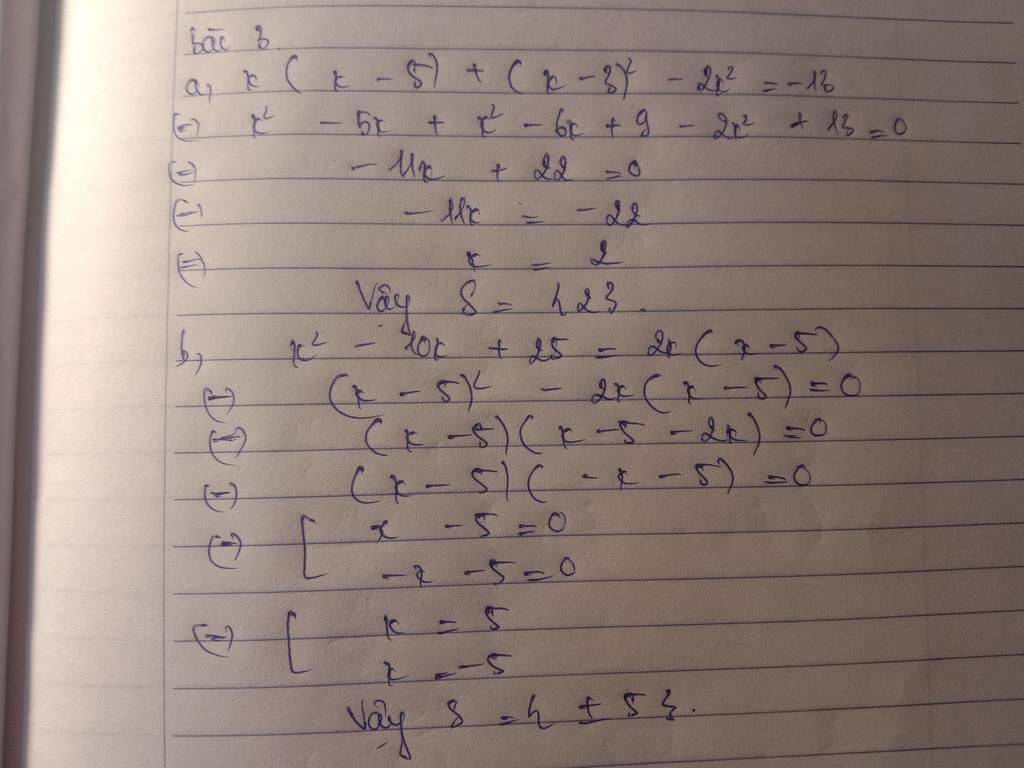 bài 3
a, x ( x - 5) + (x - 3)² - 2x² = -13
(=) x² - 5x + x² - 6x + 9 - 2x² + 13 = 0
(=) - 11x + 22 = 0
(=) - 11x = - 22
(=) x = 2
Vậy S = {2}.
b, x² - 10x + 25 = 2x ( x - 5)
(=) (x - 5)² - 2x ( x - 5) = 0
(=) (x - 5) ( x - 5 - 2x) = 0
(=) (x - 5) ( - x - 5) = 0
(=) [ x - 5 = 0
- x - 5 = 0
(=) [ x = 5
x = -5
Vậy S = { ± 5 }.